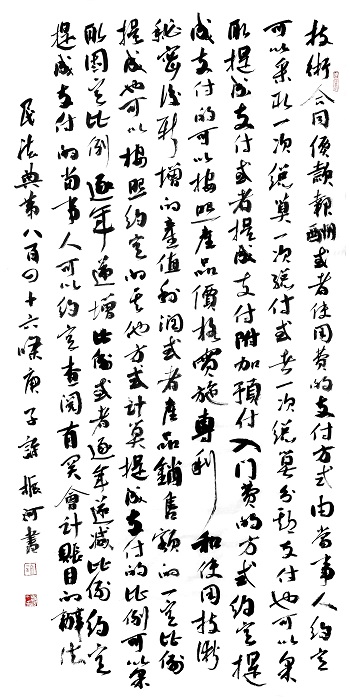 技術合同價款報酬或者使用費的支付方式由當事人約定
可以采取一次總算一次總付或者一次總算分期支付也可以采
取提成支付或者提成支付附加預付入门費的方式約定提
成支付的可以按照產品價格實施專利和使用技術
秘密後新增的產值利潤或者產品銷售額的一定比例
提成也可以按照約定的其他方式計算提成支付的比例可以采
取固定比例逐年遞增比例或者逐年遞減比例約定
提成支付的當事人可以約定查閱有関會計賬目的辦法
民法典第八百四十六條庚子振河書